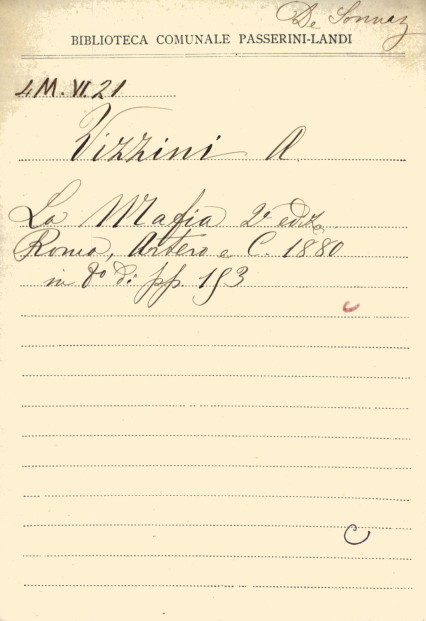 De Sonnaz
BIBLIOTECA COMUNALE PASSERINI-LANDI
4M.VI.21
Vizzini A.
La Mafia 2ª ediz.
Roma, Artero e C. 1880
in 8º di pp. 193
C
C